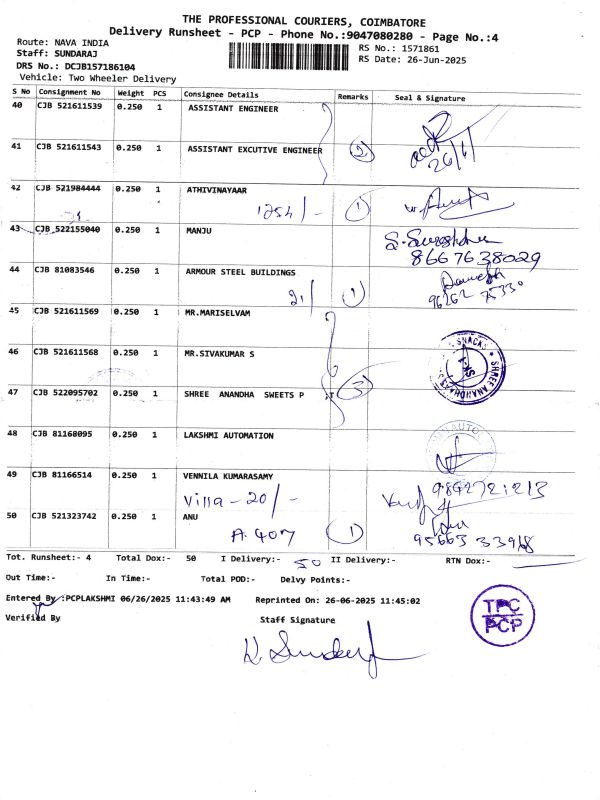 THE PROFESSIONAL COURIERS, COIMBATORE
Delivery Runsheet - PCP - Phone No.:9047080280 - Page No.:4
Route: NAVA INDIA
Staff: SUNDARAJ
DRS No.: DCJB157186104
Vehicle: Two Wheeler Delivery
RS No.: 1571861
RS Date: 26-Jun-2025
S No Consignment No Weight PCS Consignee Details Remarks Seal & Signature
40 CJB 521611539 0.250 1 ASSISTANT ENGINEER
41 CJB 521611543 0.250 1 ASSISTANT EXCUTIVE ENGINEER 2
26/6/
42 CJB 521984444 0.250 1 ATHIVINAYAAR
1254/- 1
43 CJB 522155040 0.250 1 MANJU
8667638029
44 CJB 81083546 0.250 1 ARMOUR STEEL BUILDINGS
21/ 1
96262 75330
45 CJB 521611569 0.250 1 MR.MARISELVAM
46 CJB 521611568 0.250 1 MR.SIVAKUMAR S
47 CJB 522095702 0.250 1 SHREE ANANDHA SWEETS P 3
48 CJB 81168095 0.250 1 LAKSHMI AUTOMATION
49 CJB 81166514 0.250 1 VENNILA KUMARASAMY
Villa-20/- 9842721213
50 CJB 521323742 0.250 1 ANU
A.407 1
Tot. Runsheet:- 4 Total Dox:- 50 I Delivery:- 50 II Delivery:- RTN Dox:-
Out Time:- In Time:- Total POD:- Delvy Points:-
Entered By :PCPLAKSHMI 06/26/2025 11:43:49 AM Reprinted On: 26-06-2025 11:45:02
Verified By Staff Signature
TPC
PCP